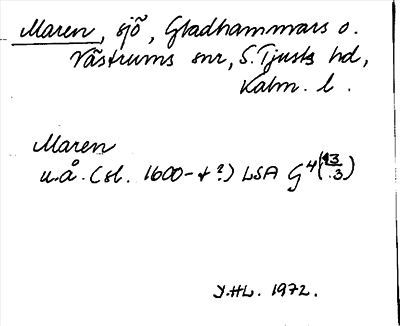 Maren, sjö, Gladhammars o.
Västrums snr, S. Tjusts hd,
Kalm. l.
Maren
u.å. (sl. 1600-t?) LSA G4(13/3)
Y.HL. 1972.